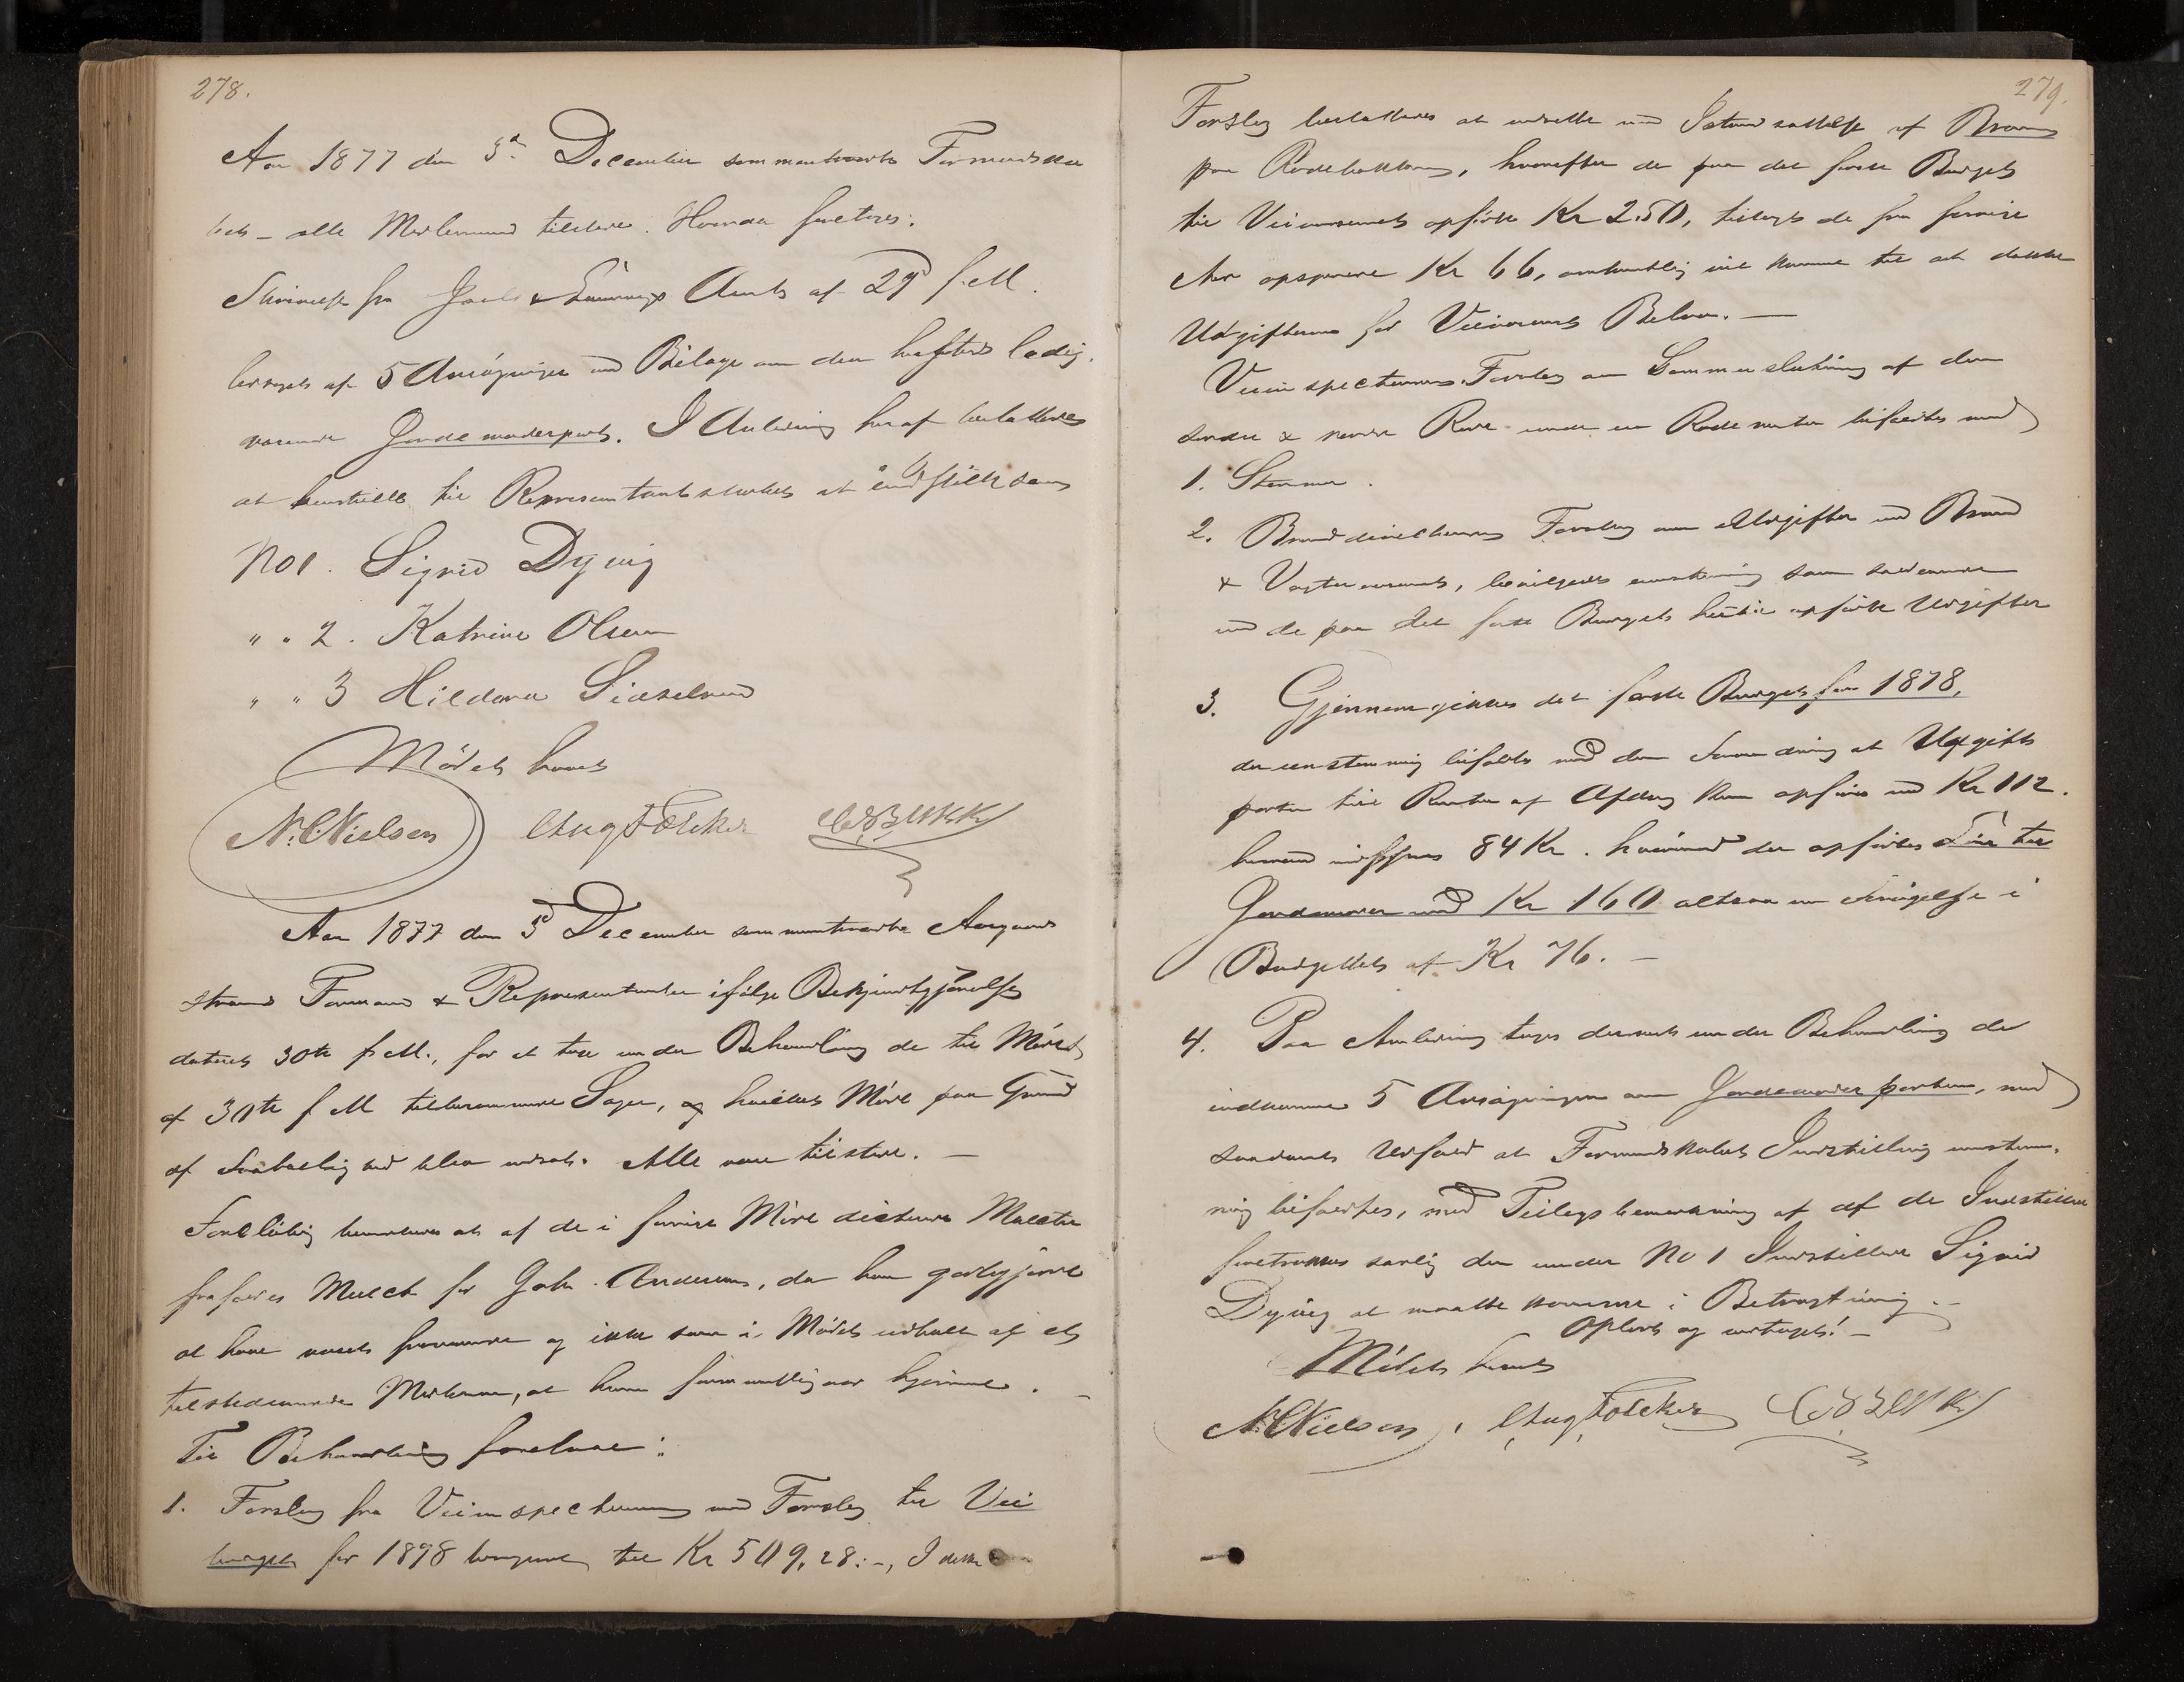 278.
Aar 1877 den 3d December sammentraadte Formandska
bet – alle Medlemmer tilstede. Hvorda foretoges:
Skrivelse fra Jarls & Laurvigs Amt af 29 f. M.
ledsaget af 5 Ansøgninger med Bilage om den herstæds ledig
værende Jordemoderpost. I Anledning heraf besluttedes
at henstille til Repræsentantskabet at indstille som
No 1. Sigrid Dyvig
" " 2. Katrine Olsen
" " 3 Hildana
Mödet hævet
N. C. Nielsen Aug Fölcker
Aar 1877 den 3d December sammentraadte Aasgaard
strand Formænd & Repræsentanter ifølge Bekjendtgjörelse
dateret 30te f. M., for at tage under Behandling de til Mödet
af 30te f M tilberammede Sager, og hvilket Möde paa Grund
af blev udsat. Alle vare tilstede. –
Foreløbig bemærkes at af de i forrige Möde dicterte Mulcter
frafaldes Mulct for Joh. Andersen, da han godtgjorde
at have været fraværende og ikke som i Mödet udtalt af et
tilstedeværende Medlem, at han var hjemme. –
Til Behandling forelaae:
1. Forslag fra Veiinspecteuren med Forslag til Vei
budget for 1878 til Kr 509,28:-, I dette
279.
Forslag besluttedes at udsætte med Istandsættelse af
paa Rodebakken, hvorefter de paa det faste Budget
til Veivæsenet opförte Kr 250, tillagt de fra forrige
Aar opsparede Kr 66, omtrentlig vil komme til at dække
Udgifterne for Veivæsenets Beløb. –
Veiinspecteurens Forslag om Sammenslutning af den
søndre & nordre Rode under en Rodemester bifaldtes med
1. Stemme.
2. Branddirecteurens Forslag om Udgifter ved Brand
& Vægtervæsenet, bevilgedes enstemmig som
med de paa det faste Budget hertil opførte Udgifter
3. Gjennemgikkes det faste Budget for 1878,
der enstemmig bifaldtes med den Forandring at Udgifts
posten til Renter af Afdrag kun opføres med Kr 112.
84 Kr. hvorimod der opføres Løn til
Jordemoder med Kr 160 altsaa en Forøgelse i
Budgettet af Kr 76. –
4. Paa Anledning toges dernæst under Behandling de
indkomne 5 Ansøgninger om Jordemoderposten, med
saadant Udfald at Formandskabets Indstilling enstem-
mig bifaldtes, med Tillægsbemærkning at af de Indstillede
foretrækkes særlig den under No 1 Indstillede Sigrid
Dyvig at maatte komme i Betragtning. –
Oplæst og vedtaget! –
Mödet hævet
N. C. Nielsen, Aug Fölcker